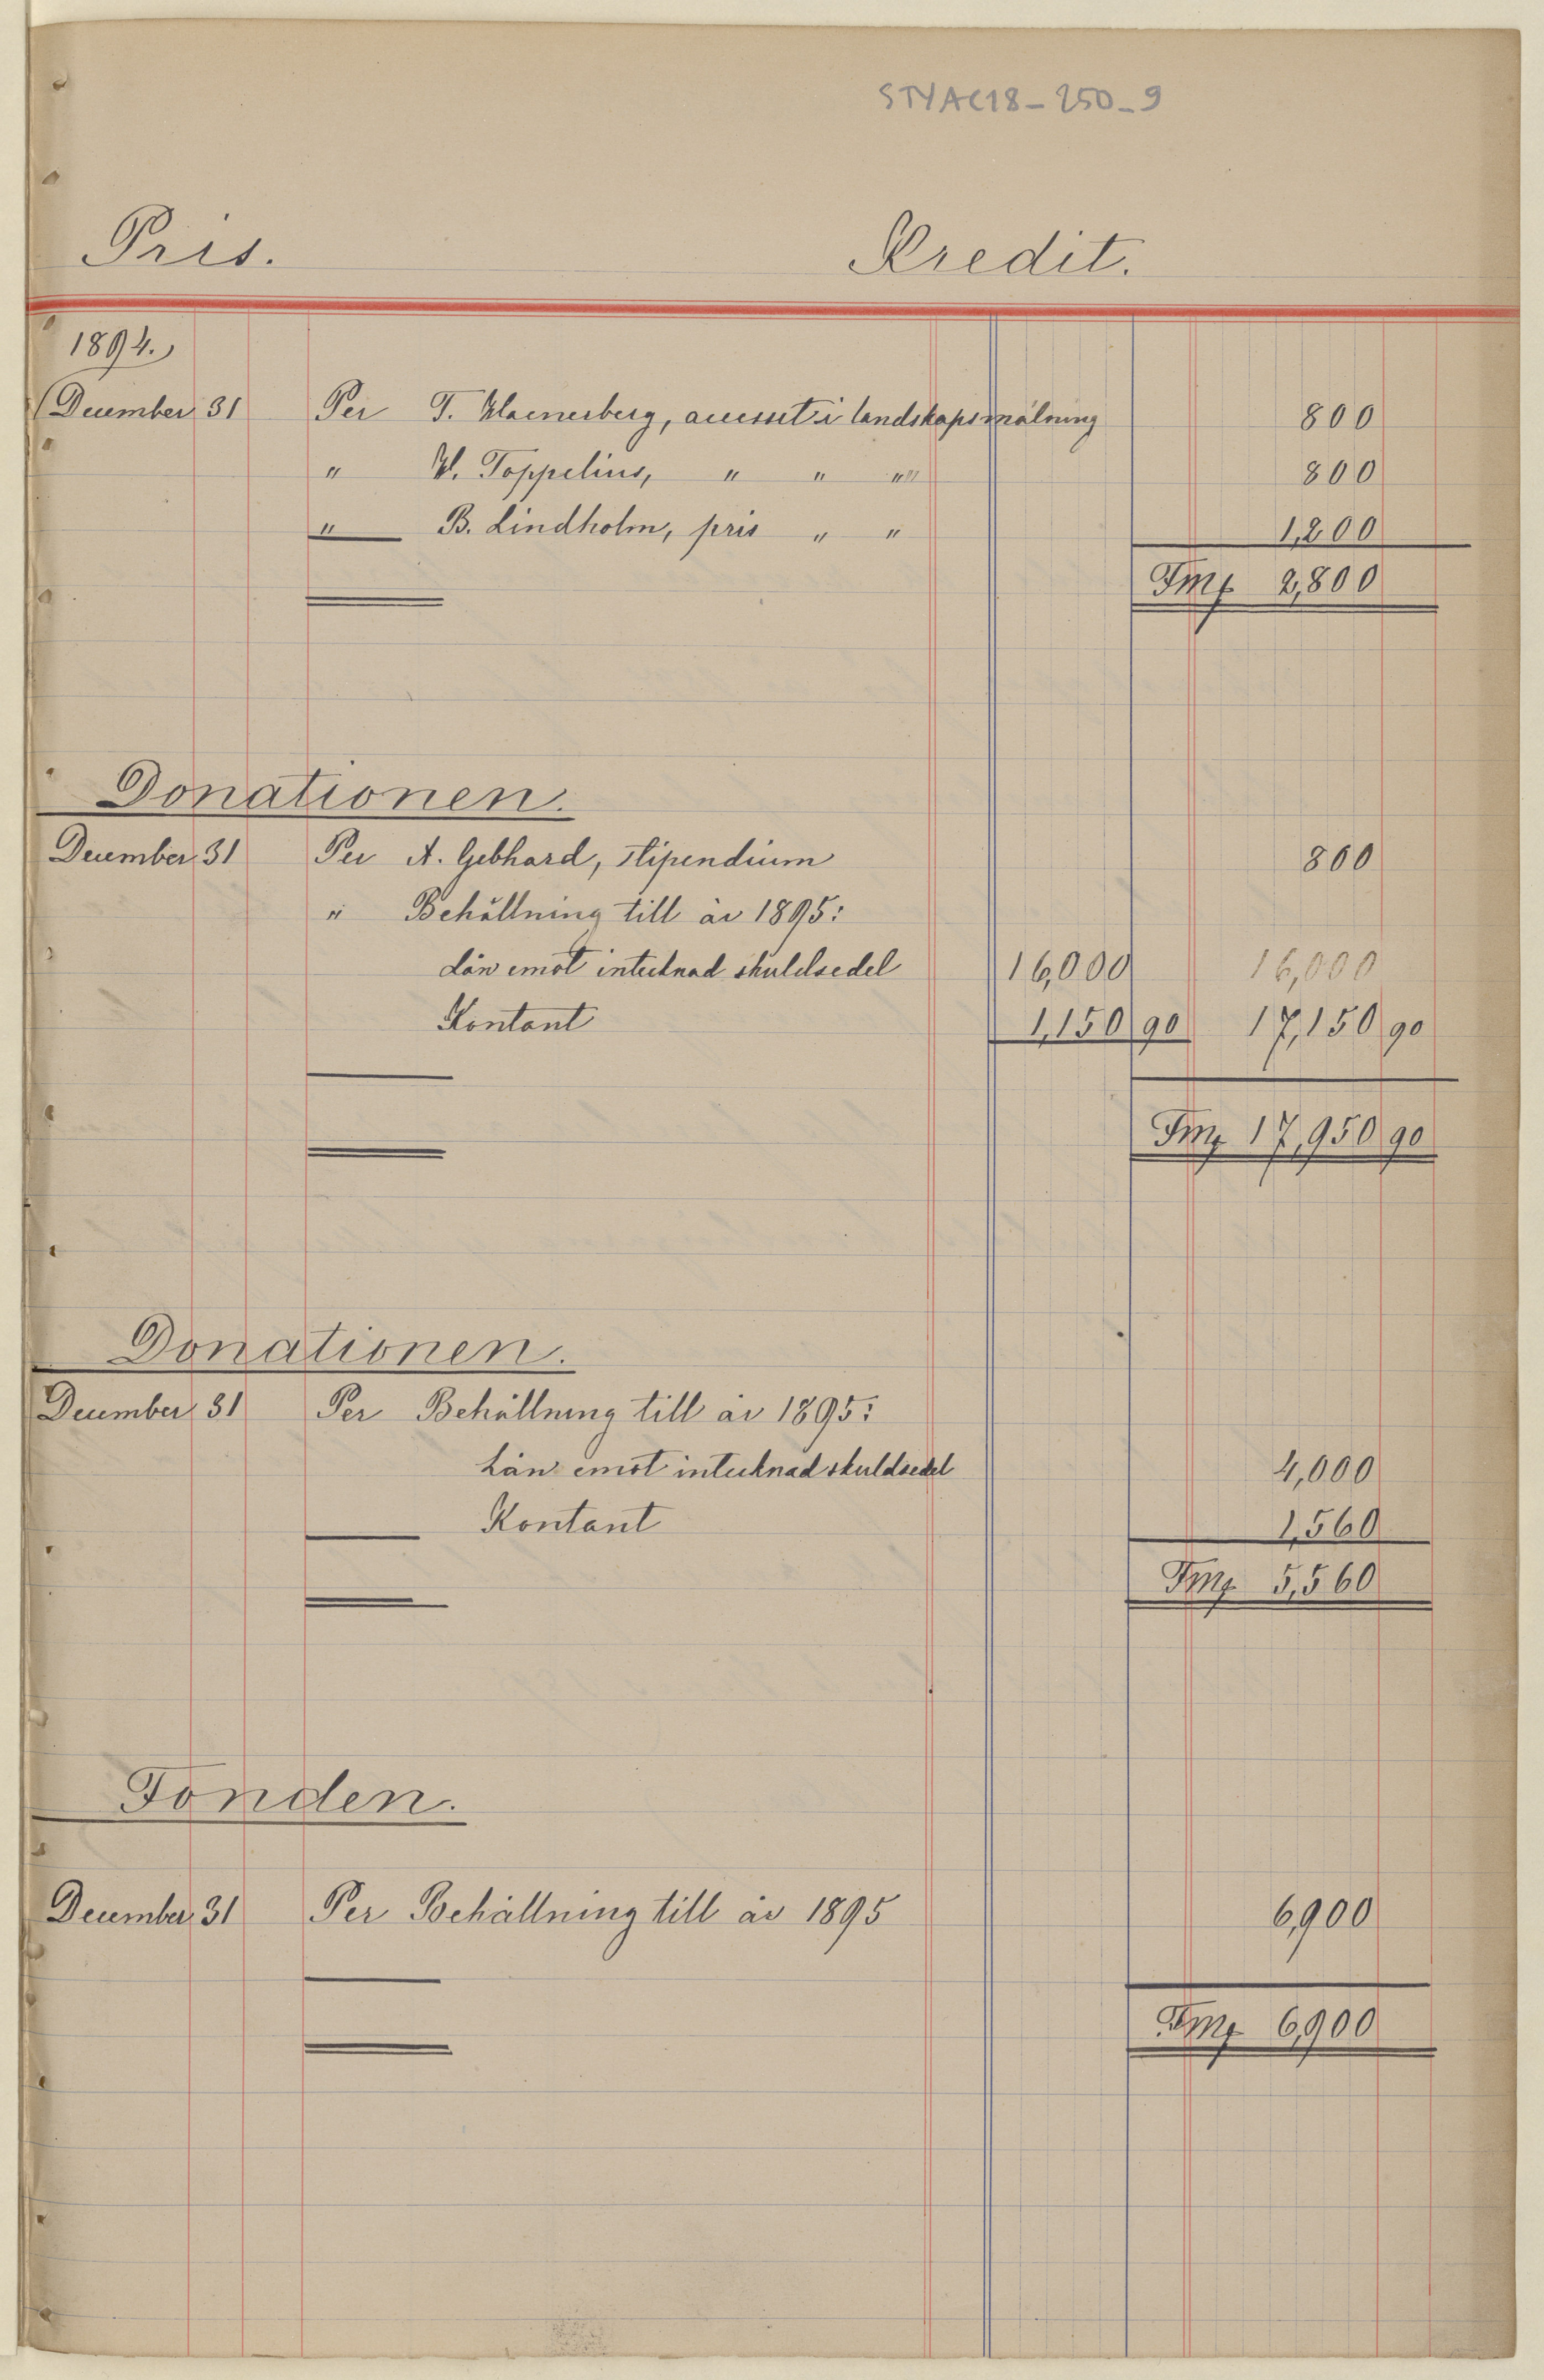 STYAC18-250-9
Pris. Kredit.
1894.
December 31 Per T. Waenerberg, accessit i landskapsmålning 800
" W. Toppelius, " " " 800
" B. Lindholm, pris " " 1,200
Fmk 2,800
Donationen.
December 31 Per A. Gebhard, stipendium 800
" Behållning till år 1895:
Lån emot intecknad skuldsedel 16,000 16,000
Kontant 1,150 90 17,150 90
Fmk 17,950 90
Donationen.
December 31 Per Behållning till år 1895:
Lån emot intecknad skuldsedel 4,000
Kontant 1,560
Fmk 5,560
Fonden.
December 31 Per Behållning till år 1895 6,900
Fmk 6,900